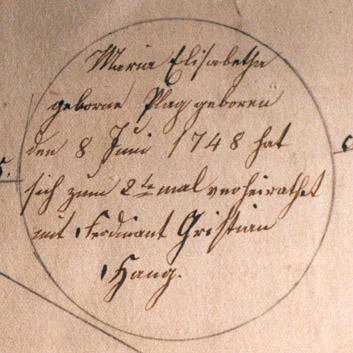 Maria Elisabetha
geborne Plag geboren
den 8 Juni 1748 hat
sich zum 2te mal verheirathet
mit Ferdinant Gristian
Haug.